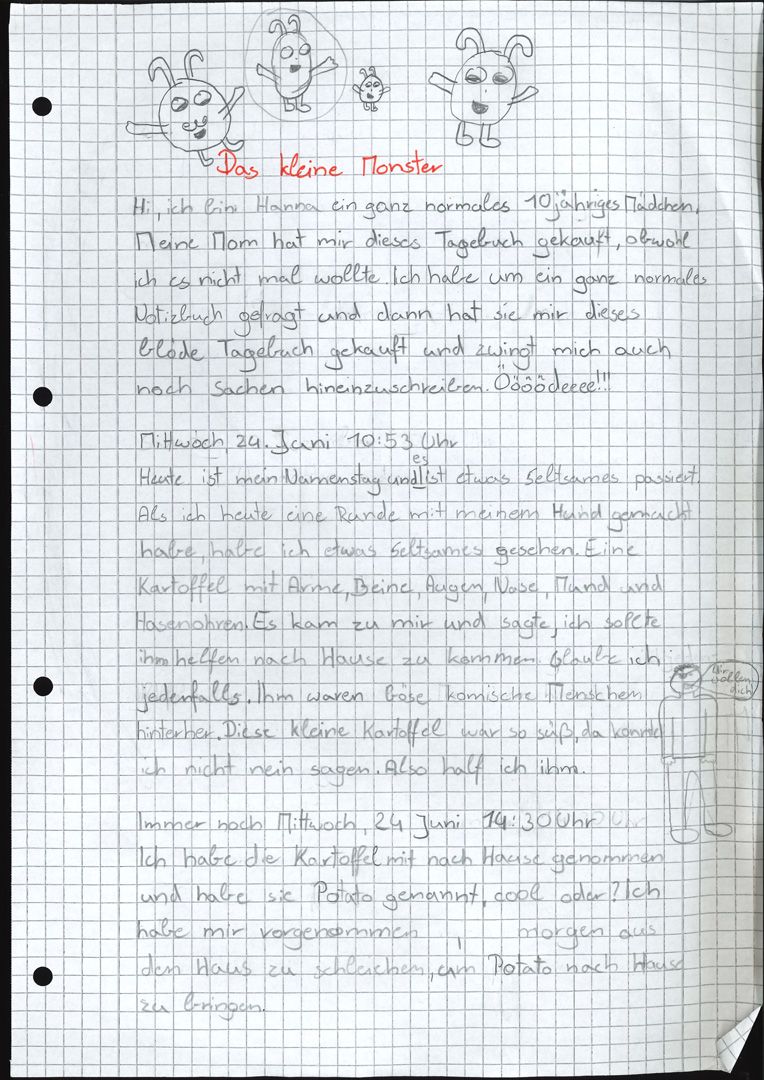 Das kleine Monster
Hi, ich bin Hanna ein ganz normales 10 jähriges Mädchen.
Meine Mom hat mir dieses Tagebuch gekauft, obwohl
ich es nicht mal wollte. Ich habe um ein ganz normales
Notizbuch gefragt und dann hat sie mir dieses
blöde Tagebuch gekauft und zwingt mich auch
noch Sachen hineinzuschreiben. Öööödeeee!!!
Mittwoch, 24. Juni 10:53 Uhr
Heute ist mein Namenstag und es ist etwas Seltsames passiert.
Als ich heute eine Runde mit meinem Hund gemacht
habe, habe ich etwas Seltsames gesehen. Eine
Kartoffel mit Arme, Beine, Augen, Nase, Mund und
Hasenohren. Es kam zu mir und sagte, ich sollte
ihm helfen nach Hause zu kommen. Glaube ich
jedenfalls. Ihm waren böse komische Menschen
hinterher. Diese kleine Kartoffel war so süß, da konnte
ich nicht nein sagen. Also half ich ihm.
Wir
wollen
dich
Immer noch Mittwoch, 24 Juni 14:30 Uhr
Ich habe die Kartoffel mit nach Hause genommen
und habe sie Potato genannt, cool oder? Ich
habe mir vorgenommen morgen aus
dem Haus zu schleichen, um Potato nach Hause
zu bringen.